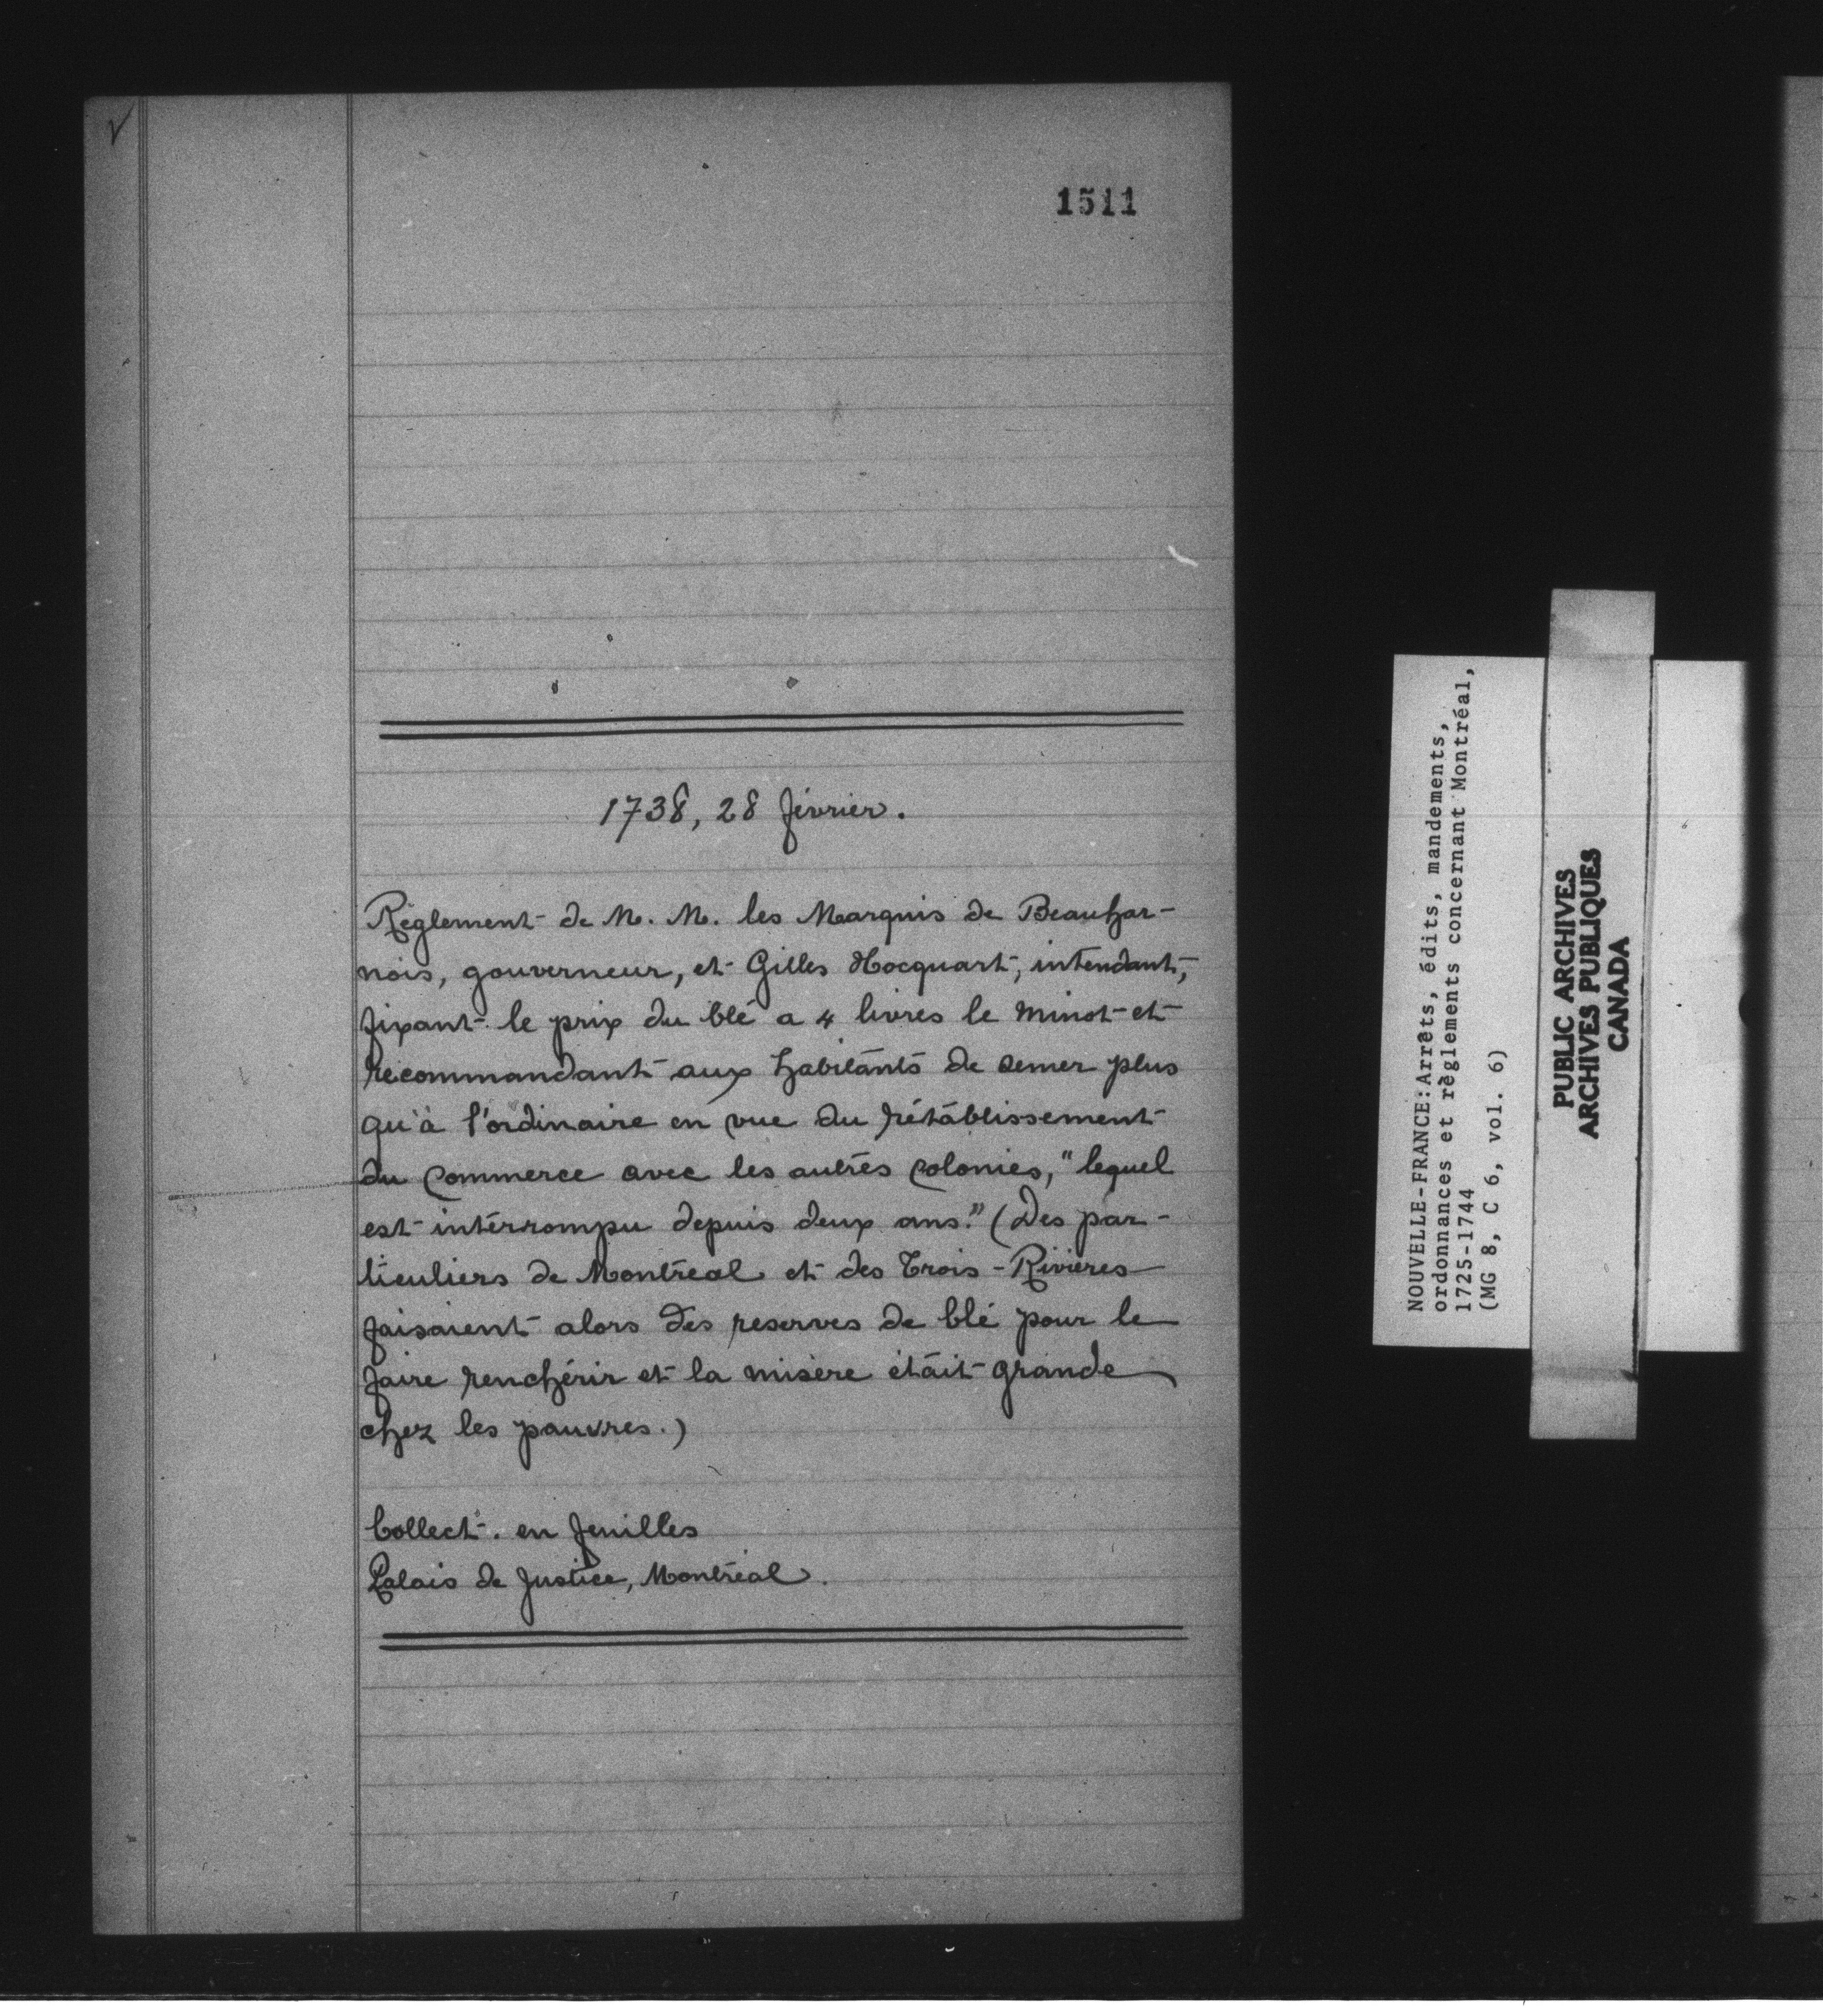 1511
1738, 28 février.
Règlement de M. M. les Marquis de Beauhar-
nois, gouverneur, et Gilles Hocquart, intendant,
fixant le prix du blé a 4 livres le minot et
recommandant aux habitants de semer plus
qu'à l'ordinaire en vue du rétablissement
du commerce avec les autres colonies, "lequel
est interrompu depuis deux ans." (Des par-
ticuliers de Montréal et des Trois-Rivières
faisaient alors des reserves de blé pour le
faire renchérir et la misère était grande
chez les pauvres.)
Collect. en feuilles
Palais de Justice, Montréal.
NOUVELLE-FRANCE:Arrêts, édits, mandements,
ordonnances et règlements concernant Montréal,
1725-1744
(MG 8, C 6, vol. 6)
PUBLIC ARCHIVES
ARCHIVES PUBLIQUES
CANADA